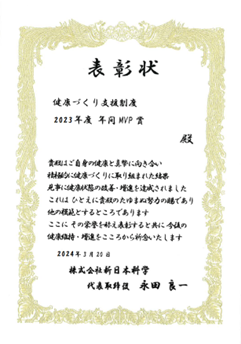 表彰状
健康づくり支援制度
2023年度 年間MVP賞
殿
貴殿はご自身の健康と真摯に向き合い
積極的に健康づくりに取り組まれた結果
見事に健康状態の改善・増進を達成されました
これは ひとえに貴殿のたゆまぬ努力の賜であり
他の模範とするところであります
ここに その栄誉を称え表彰すると共に 今後の
健康維持・増進をこころから祈念いたします
2024年3月20日
株式会社新日本科学
代表取締役 永田 良一